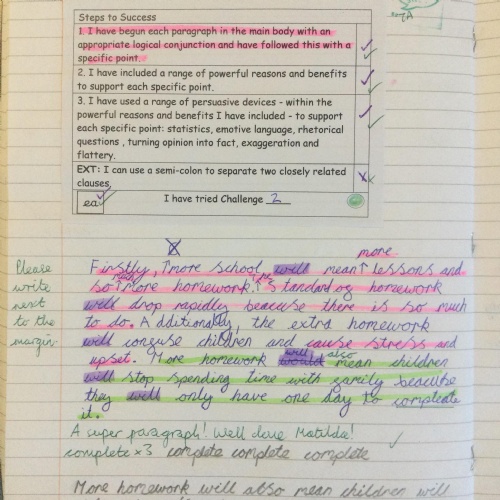 Steps to Success
1. I have begun each paragraph in the main body with an
appropriate logical conjunction and have followed this with a
specific point.
2. I have included a range of powerful reasons and benefits
to support each specific point.
3. I have used a range of persuasive devices - within the
powerful reasons and benefits I have included - to support
each specific point: statistics, emotive language, rhetorical
questions , turning opinion into fact, exaggeration and
flattery.
EXT: I can use a semi-colon to separate two closely related
clauses,
I have tried Challenge 2
more
Firstly, more school will mean lessons and
so much more homework. The Standard og homework
will drop rapidly beacuse there is so much
to do. Additionally, the extra homework
will conguse children and cause stress and
upset. More homework would will also mean children
will stop spending time with gamily beacuse
they will only have one day to compleate
it.
Please
write
next
to the
margin.
A super paragraph! Well done Matilda!
complete x3 complete complete complete
More homework will also mean children will